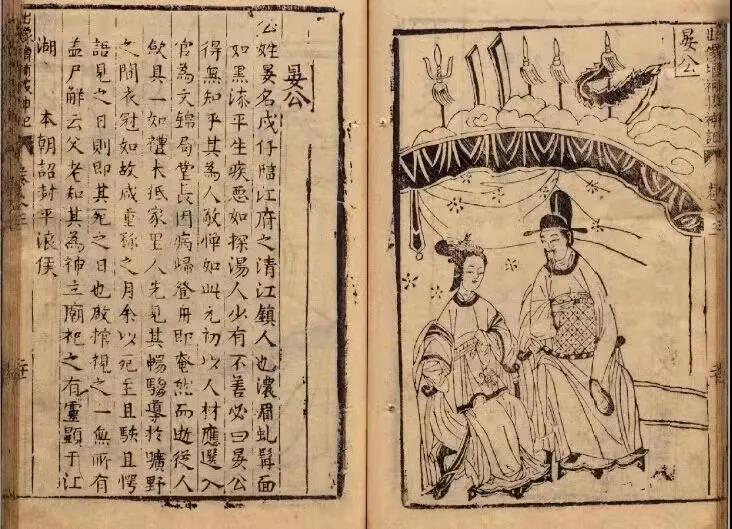 出像增補搜神記
晏公
晏公
公姓晏名戌仔臨江府之清江鎮人也濃眉虬髯面
如黑漆平生疾惡如探湯人少有不善必曰晏公
得無知乎其為人敬憚如此元初以人材應選入
官為文錦局堂長因病歸登舟即奄然而逝從人
歛具一如禮未抵家里人先見其暢騶導於曠野
之間衣冠如故咸重稱之月余以死至且駭且愕
語見之日則即其死之日也啟棺視之一無所有
盖尸解云父老知其為神立廟祀之有靈顯于江
湖 本朝詔封平浪侯
出像增補搜神記 卷之三